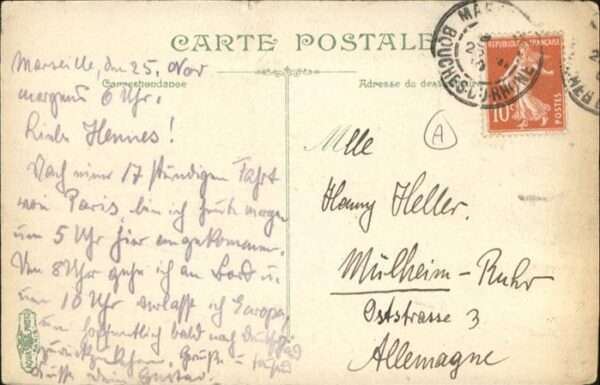 CARTE POSTALE
Correspondance
Adresse du dest
Marseille, den 25. Nov
morgens 6 Uhr.
Liebe Hennes!
Nach einer 17 stündigen Fahrt
von Paris, bin ich heute morgen
um 5 Uhr hier angekommen.
Um 8 Uhr gehe ich an Bord u.
um 10 Uhr verlasse ich Europa,
um hoffentlich bald nach
zurückzukehren. Grüße u.
Dein Gustav.
RÉPUBLIQUE FRANÇAISE
10c
POSTES
BOUCHES-DU-RHONE
A
Mlle
Hanny Heller.
Mülheim-Ruhr
Oststrasse 3
Allemagne